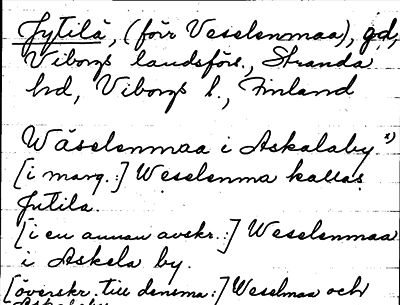 Jytilä, (förr Veselenmaa), gd,
Viborgs landsförs., Stranda
hd, Viborgs l., Finland
Wäselenmaa i Askalaby x)
[i marg.:] Weselenma kallas
Jutila.
[i en annan avskr.:] Weselenmaa
i Askela by.
[överskr. till denna:] Weselmaa och
Askalaby